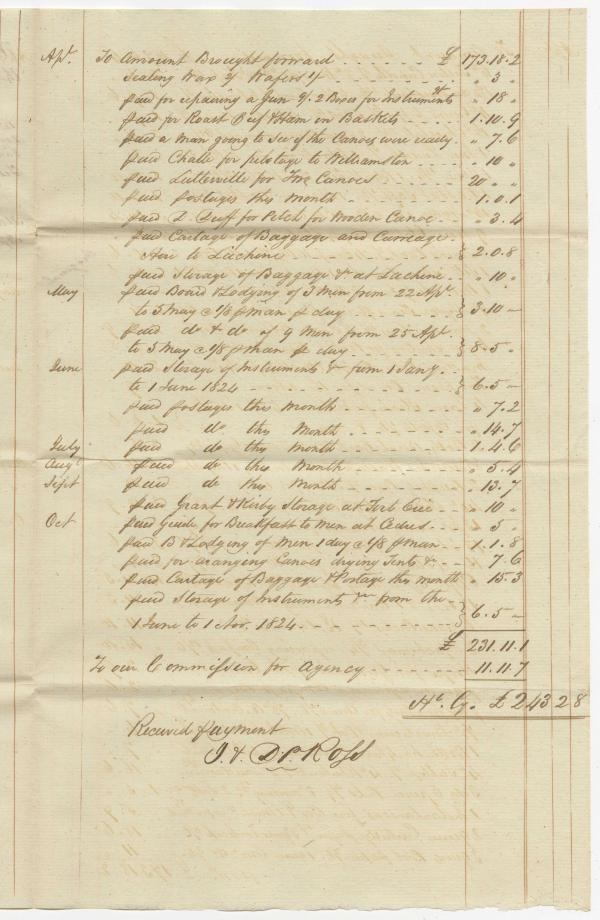 Apl. To Amount Brought forward . . . . . . £ 173.18.2
Sealing Wax 2/ Wafers 1/ . . . . . " 3 "
paid for repairing a Gun 8/. 2 Boxes for Instruments " 18 "
paid for Roast Beef & Ham in Baskets . . . 1.10.9
paid a Man going to See if the Canoes were ready . " 7.6
paid for pilotage to Williamston . . . . " 10 "
paid for Two Canoes . . . . . 20 " "
paid postages this month . . . . . 1.0.1
paid for Pitch for Wooden Canoe . . . " 3.4
paid Cartage of Baggage and Carriage
to Lachine . . . . . } 2.0.8
paid Storage of Baggage &c at Lachine . . " 10 "
May paid Board & Lodging of 3 Men from 22 Apl.
to 5 May @ 1/8 p man p day . . . . . } 3.10 —
paid do & do of 9 Men from 25 Apl.
to 5 May @ 1/8 p man p day . . . . } 8.5 "
June paid Storage of Instruments &c from 1 Jany.
to 1 June 1824 . . . . . } 6.5 —
paid postages this month . . . . " 7.2
paid do this Month . . . . . " 14.7
July paid do this Month . . . . 1.4.6
Augt paid do this Month . . . . " 5.4
Sept paid do this Month . . . . " 13.7
paid Grant & Kirby Storage at Fort Erie . . " 10 "
Oct paid Guide for Breakfast to Men at Cedres . . " 5 "
paid B & Lodging of Men 1 day @ 1/8 p man . . 1.1.8
paid for arranging Canoes drying Tents &c . . 7.6
paid Cartage of Baggage & Portage this month " 15.3
paid Storage of Instruments &c from the
1 June to 1 Nov. 1824 . . . . . } 6.5 —
£ 231.11.1
To our Commission for Agency . . . . . 11.11.7
Hx. Cy. £ 243 2 8
Received payment
J. & D. P. Ross